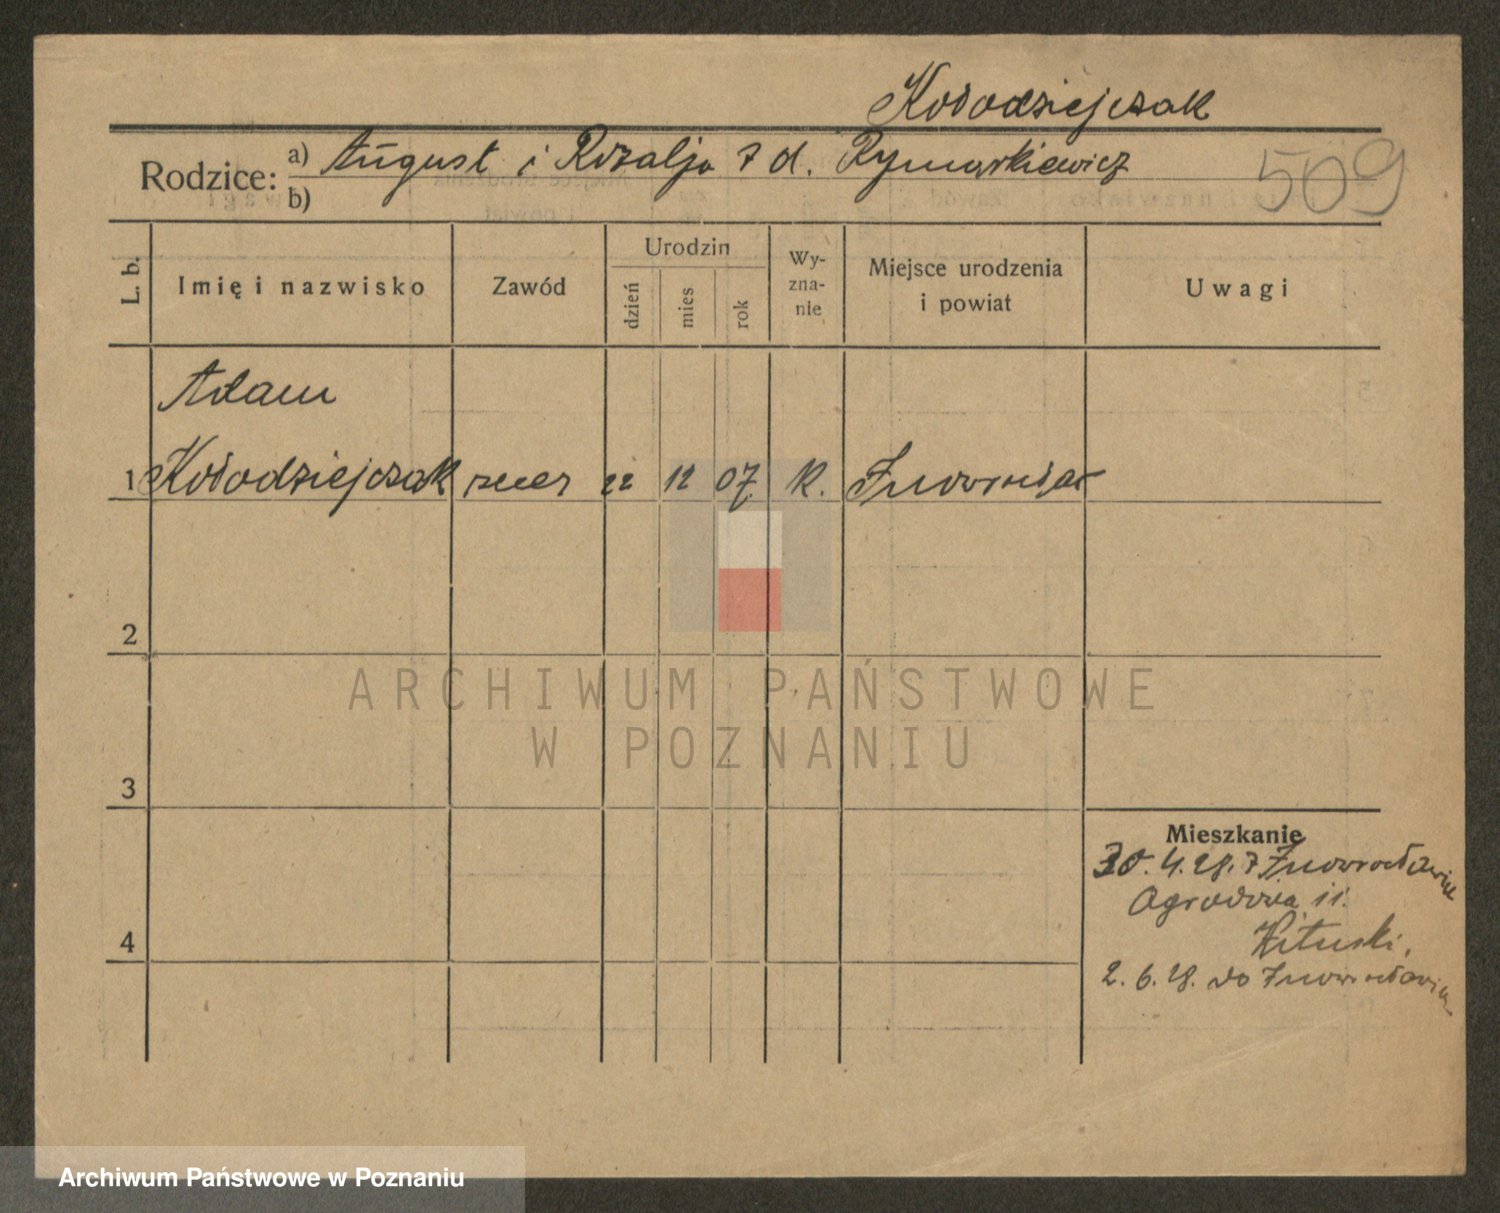 Kołodziejczak
Rodzice: a) August i Rozalja z d. Rymarkiewicz
b)
509
L. b. Imię i nazwisko Zawód Urodzin dzień mies rok Wyznanie Miejsce urodzenia i powiat Uwagi
Adam
1 Kołodziejczak 22 12 07. K. Inowrocław
2
3
4
Mieszkanie
30. 4. 28. z Inowrocławia
Ogrodowa 11.
2. 6. 28. do Inowrocławia
ARCHIWUM PAŃSTWOWE
W POZNANIU
Archiwum Państwowe w Poznaniu